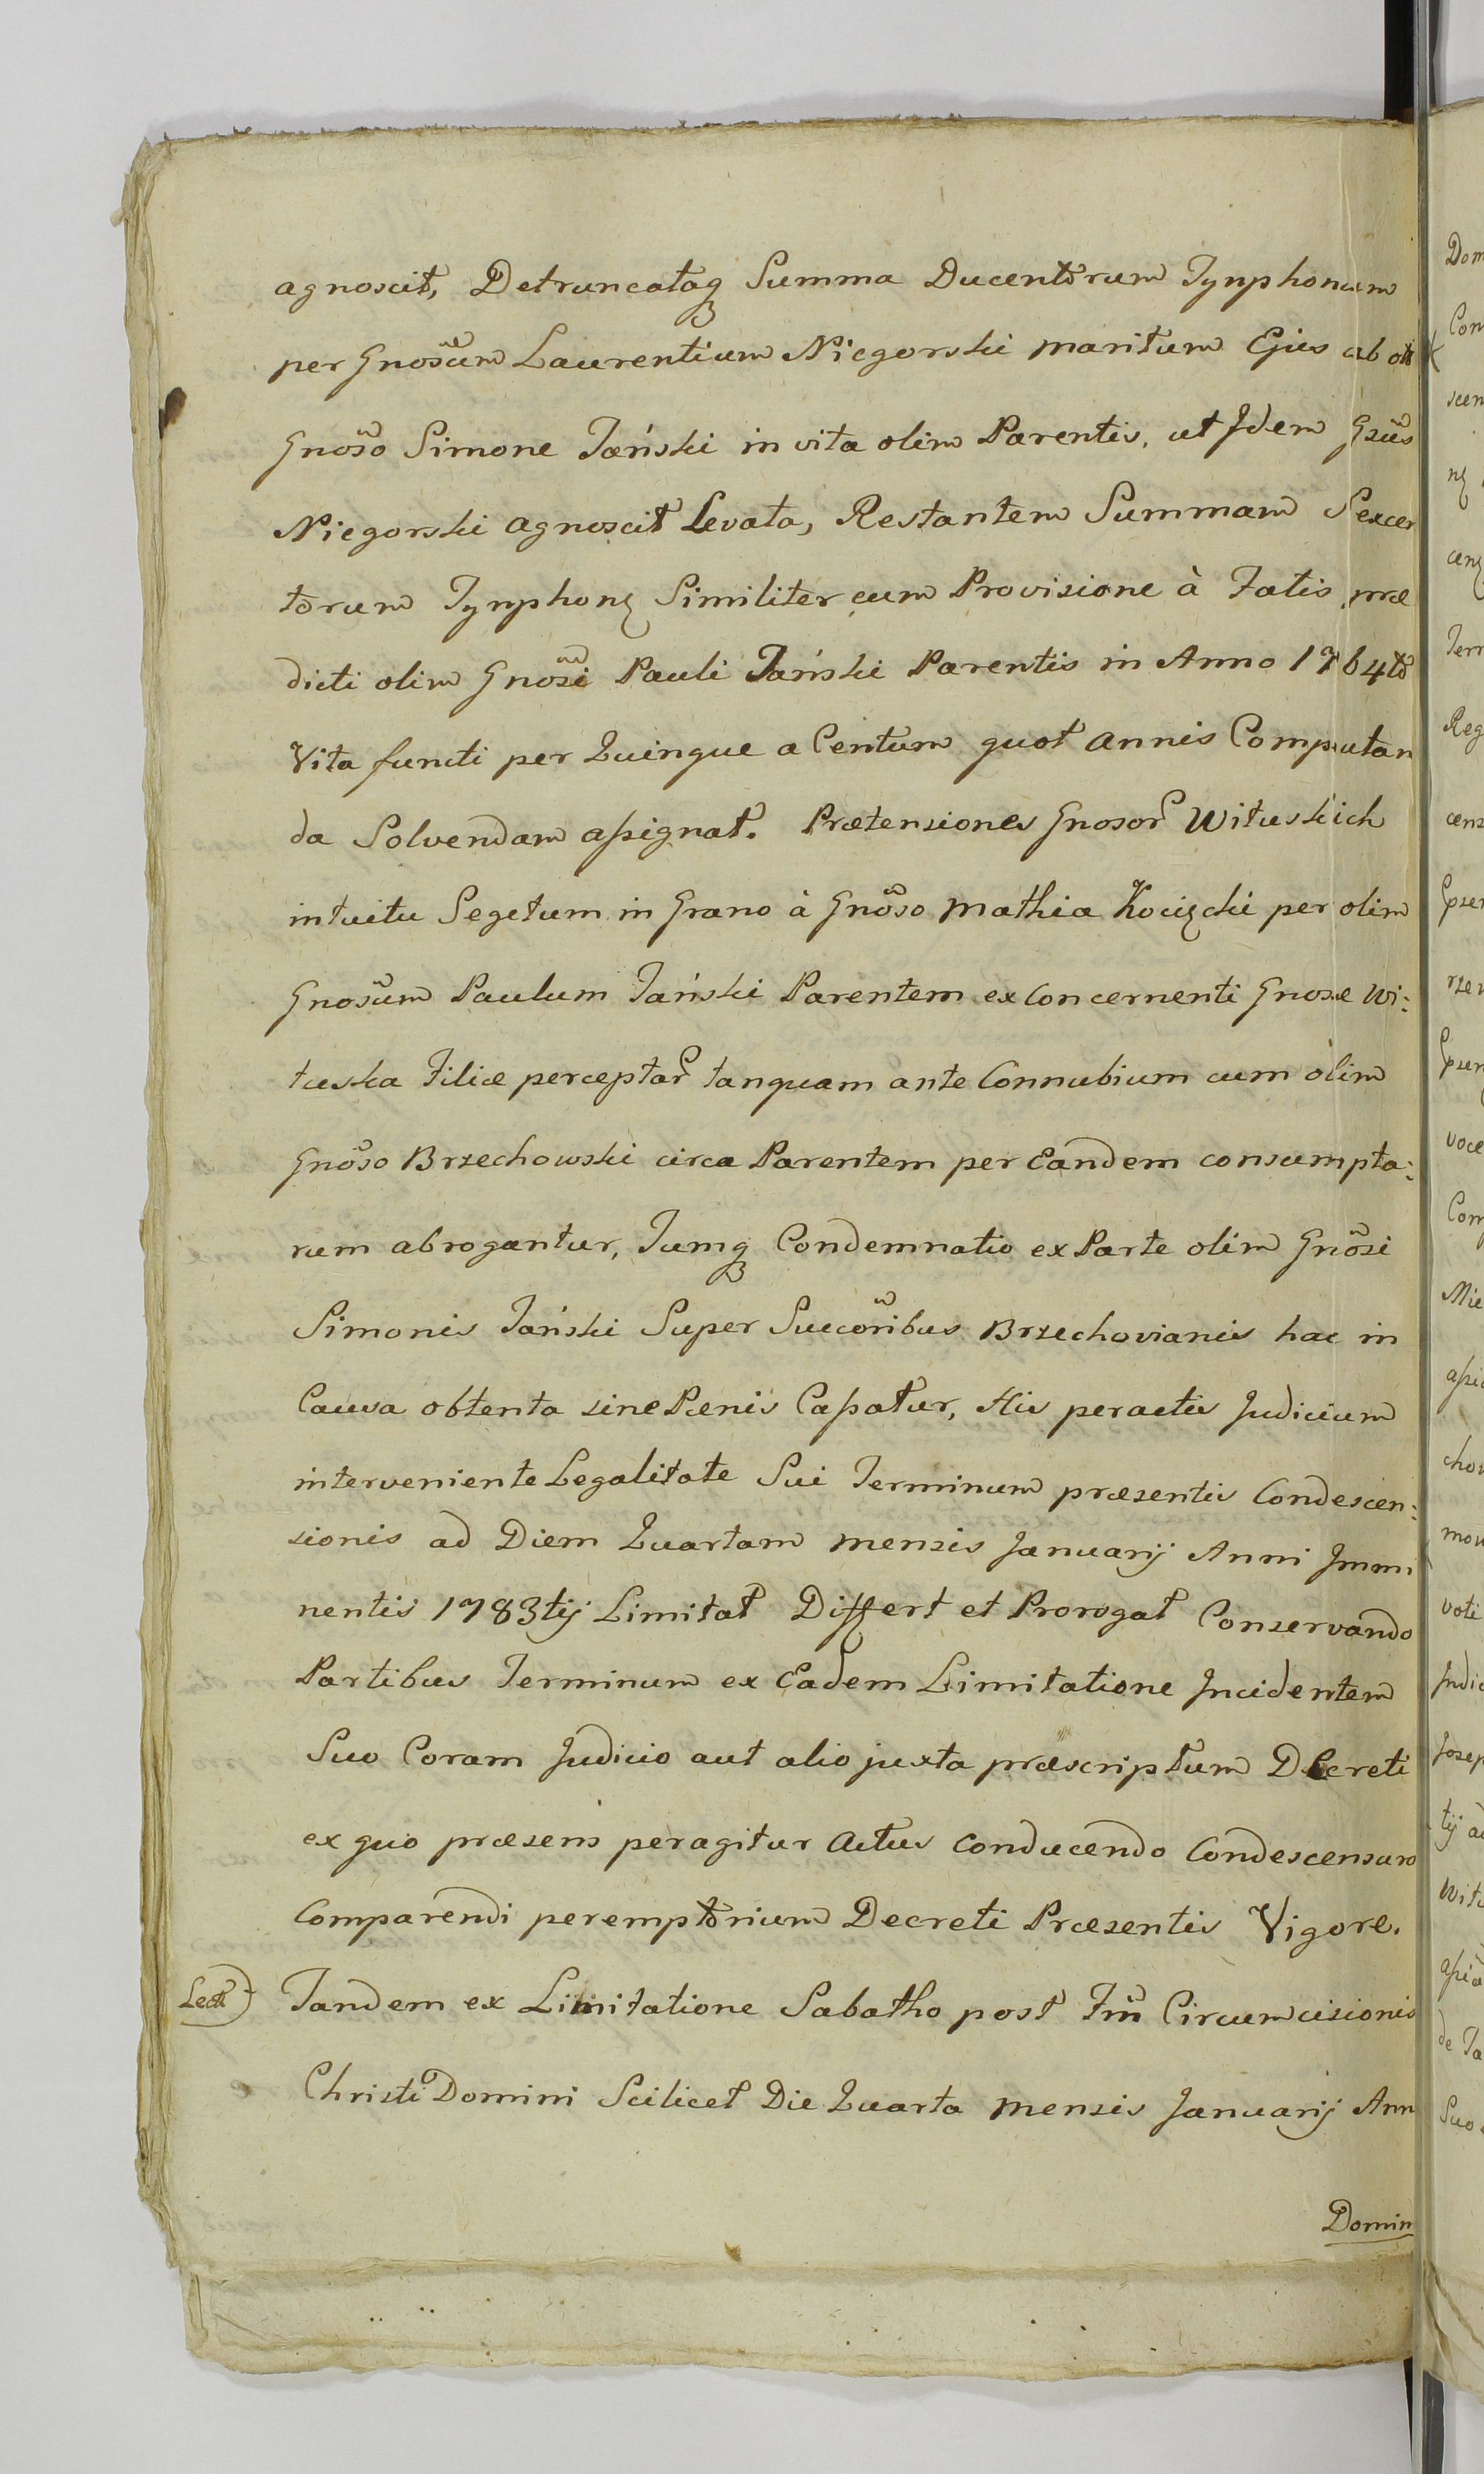 agnoscit, Detruncataq Summa Ducentorum Tynphonum
per Gnosum Laurentium Niegorski maritum Ejus ab
Gnoso Simone Jański in vita olim Parentis, ut Idem Gsus
Niegorski agnoscit Levata, Restantem Summam Sexcen
torum Tynphonę Similiter cum Provisione à Fatis præ
dicti olim Gnosi Pauli Jański Parentis in Anno 1764to
Vita functi per Quinque a Centum quot annis Computan
da Solvendam assignat. Prætensiones Gnosor Wituskich
intuitu Segetum in Grano à Gnoso Mathia Kocięcki per olim
Gnosum Paulum Jański Parentem ex Concernenti Gnosæ Wi:
tuska Filiæ perceptar tanquam ante Connubium cum olim
Gnoso Brzechowski circa Parentem per Eandem consumpta:
rum abrogantur, Tumq Condemnatio ex Parte olim Gnosi
Simonis Jański Super Succoribus Brzechovianis hac in
Causa obtenta sine Pænis Cassatur, His peractis Judicium
interveniente Legalitate Sui Terminum præsentis Condescen:
sionis ad Diem Quartam mensis Januarij Anni Immi
nentis 1783tij Limitat Differt et Prorogat Conservando
Partibus Terminum ex Eadem Limitatione Incidentem
Suo Coram Judicio aut alio juxta præscriptum Decreti
ex quo præsens peragitur Actus conducendo Condescensuro
Comparendi peremptorium Decreti Præsentis Vigore.
Lect) Tandem ex Limitatione Sabatho post Fm Circumcisionis
Christi Domini Scilicet Die Quarta mensis Januarij Ann
Domin